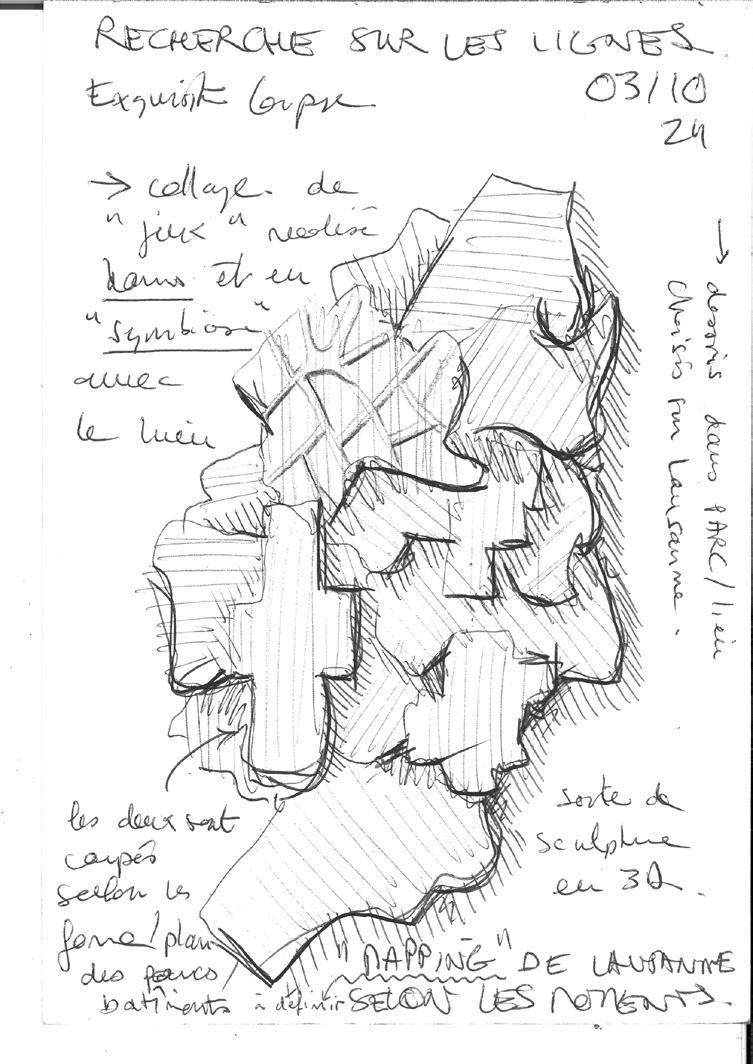 RECHERCHE SUR LES LIGNES.
Exquisite Corpse
03/10
24
→ collage de
"jeux" réalisé
dans et en
"symbiose"
avec
le lieu
→ dessins dans PARC/lieu
choisis sur Lausanne.
les deux sont
coupés
selon les
forme/plan
des parcs
batîments à définir
sorte de
sculpture
en 3D.
"MAPPING" DE LAUSANNE
SELON LES MOMENTS.